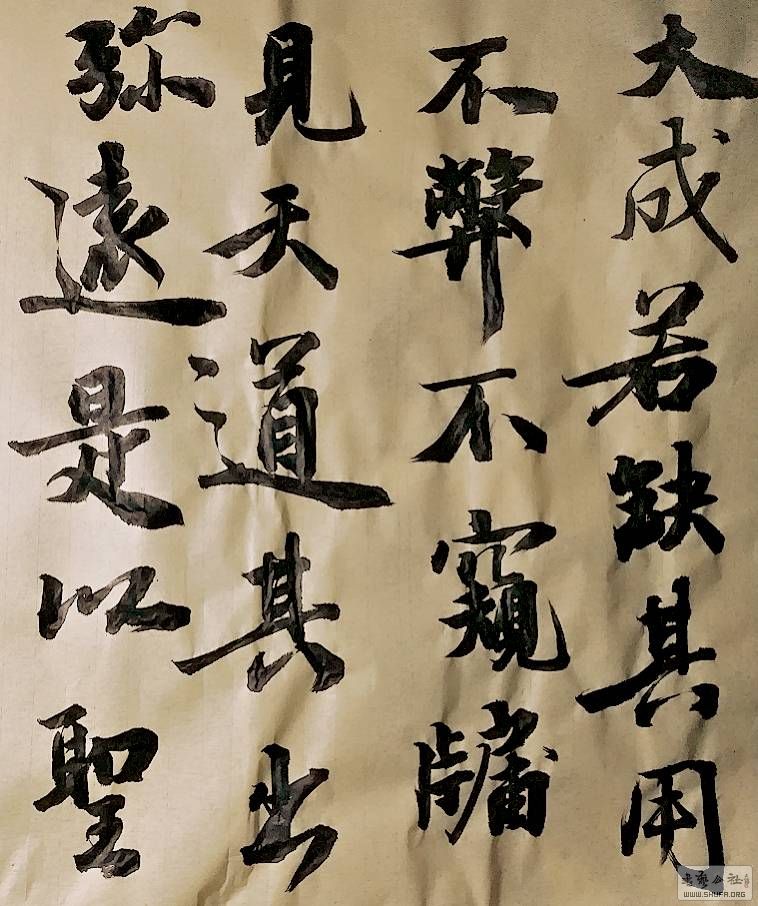 大成若缺其用
不弊不窺牖
見天道其出
弥遠是以聖
WWW.SHUFA.ORG